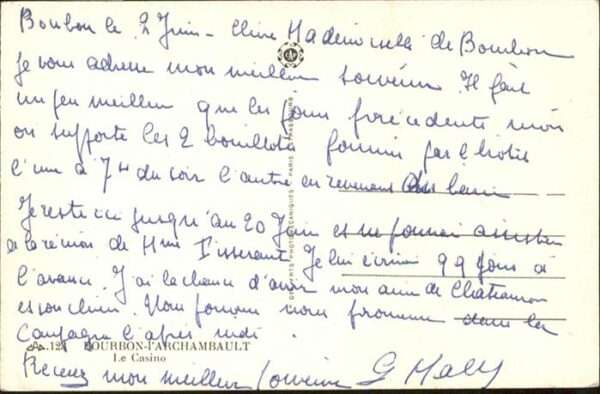 Bourbon le 2 Juin - Chère Mademoiselle de Bourbon
Je vous adresse mon meilleur souvenir. Il fait
un peu meilleur que les jours précédents mais
on supporte les 2 bouillottes fournies par l'hôtel
l'une à 7h du soir l'autre en revenant du bain
Je reste ici jusqu'au 20 Juin et ne pourrai assister
à la réunion de Mme Je lui écrirai jours à
l'avance. J'ai la chance d'avoir mon amie de
Nous pouvons nous promener dans la
campagne l'après midi.
12 BOURBON-l'ARCHAMBAULT
Le Casino
Recevez mon meilleur souvenir G